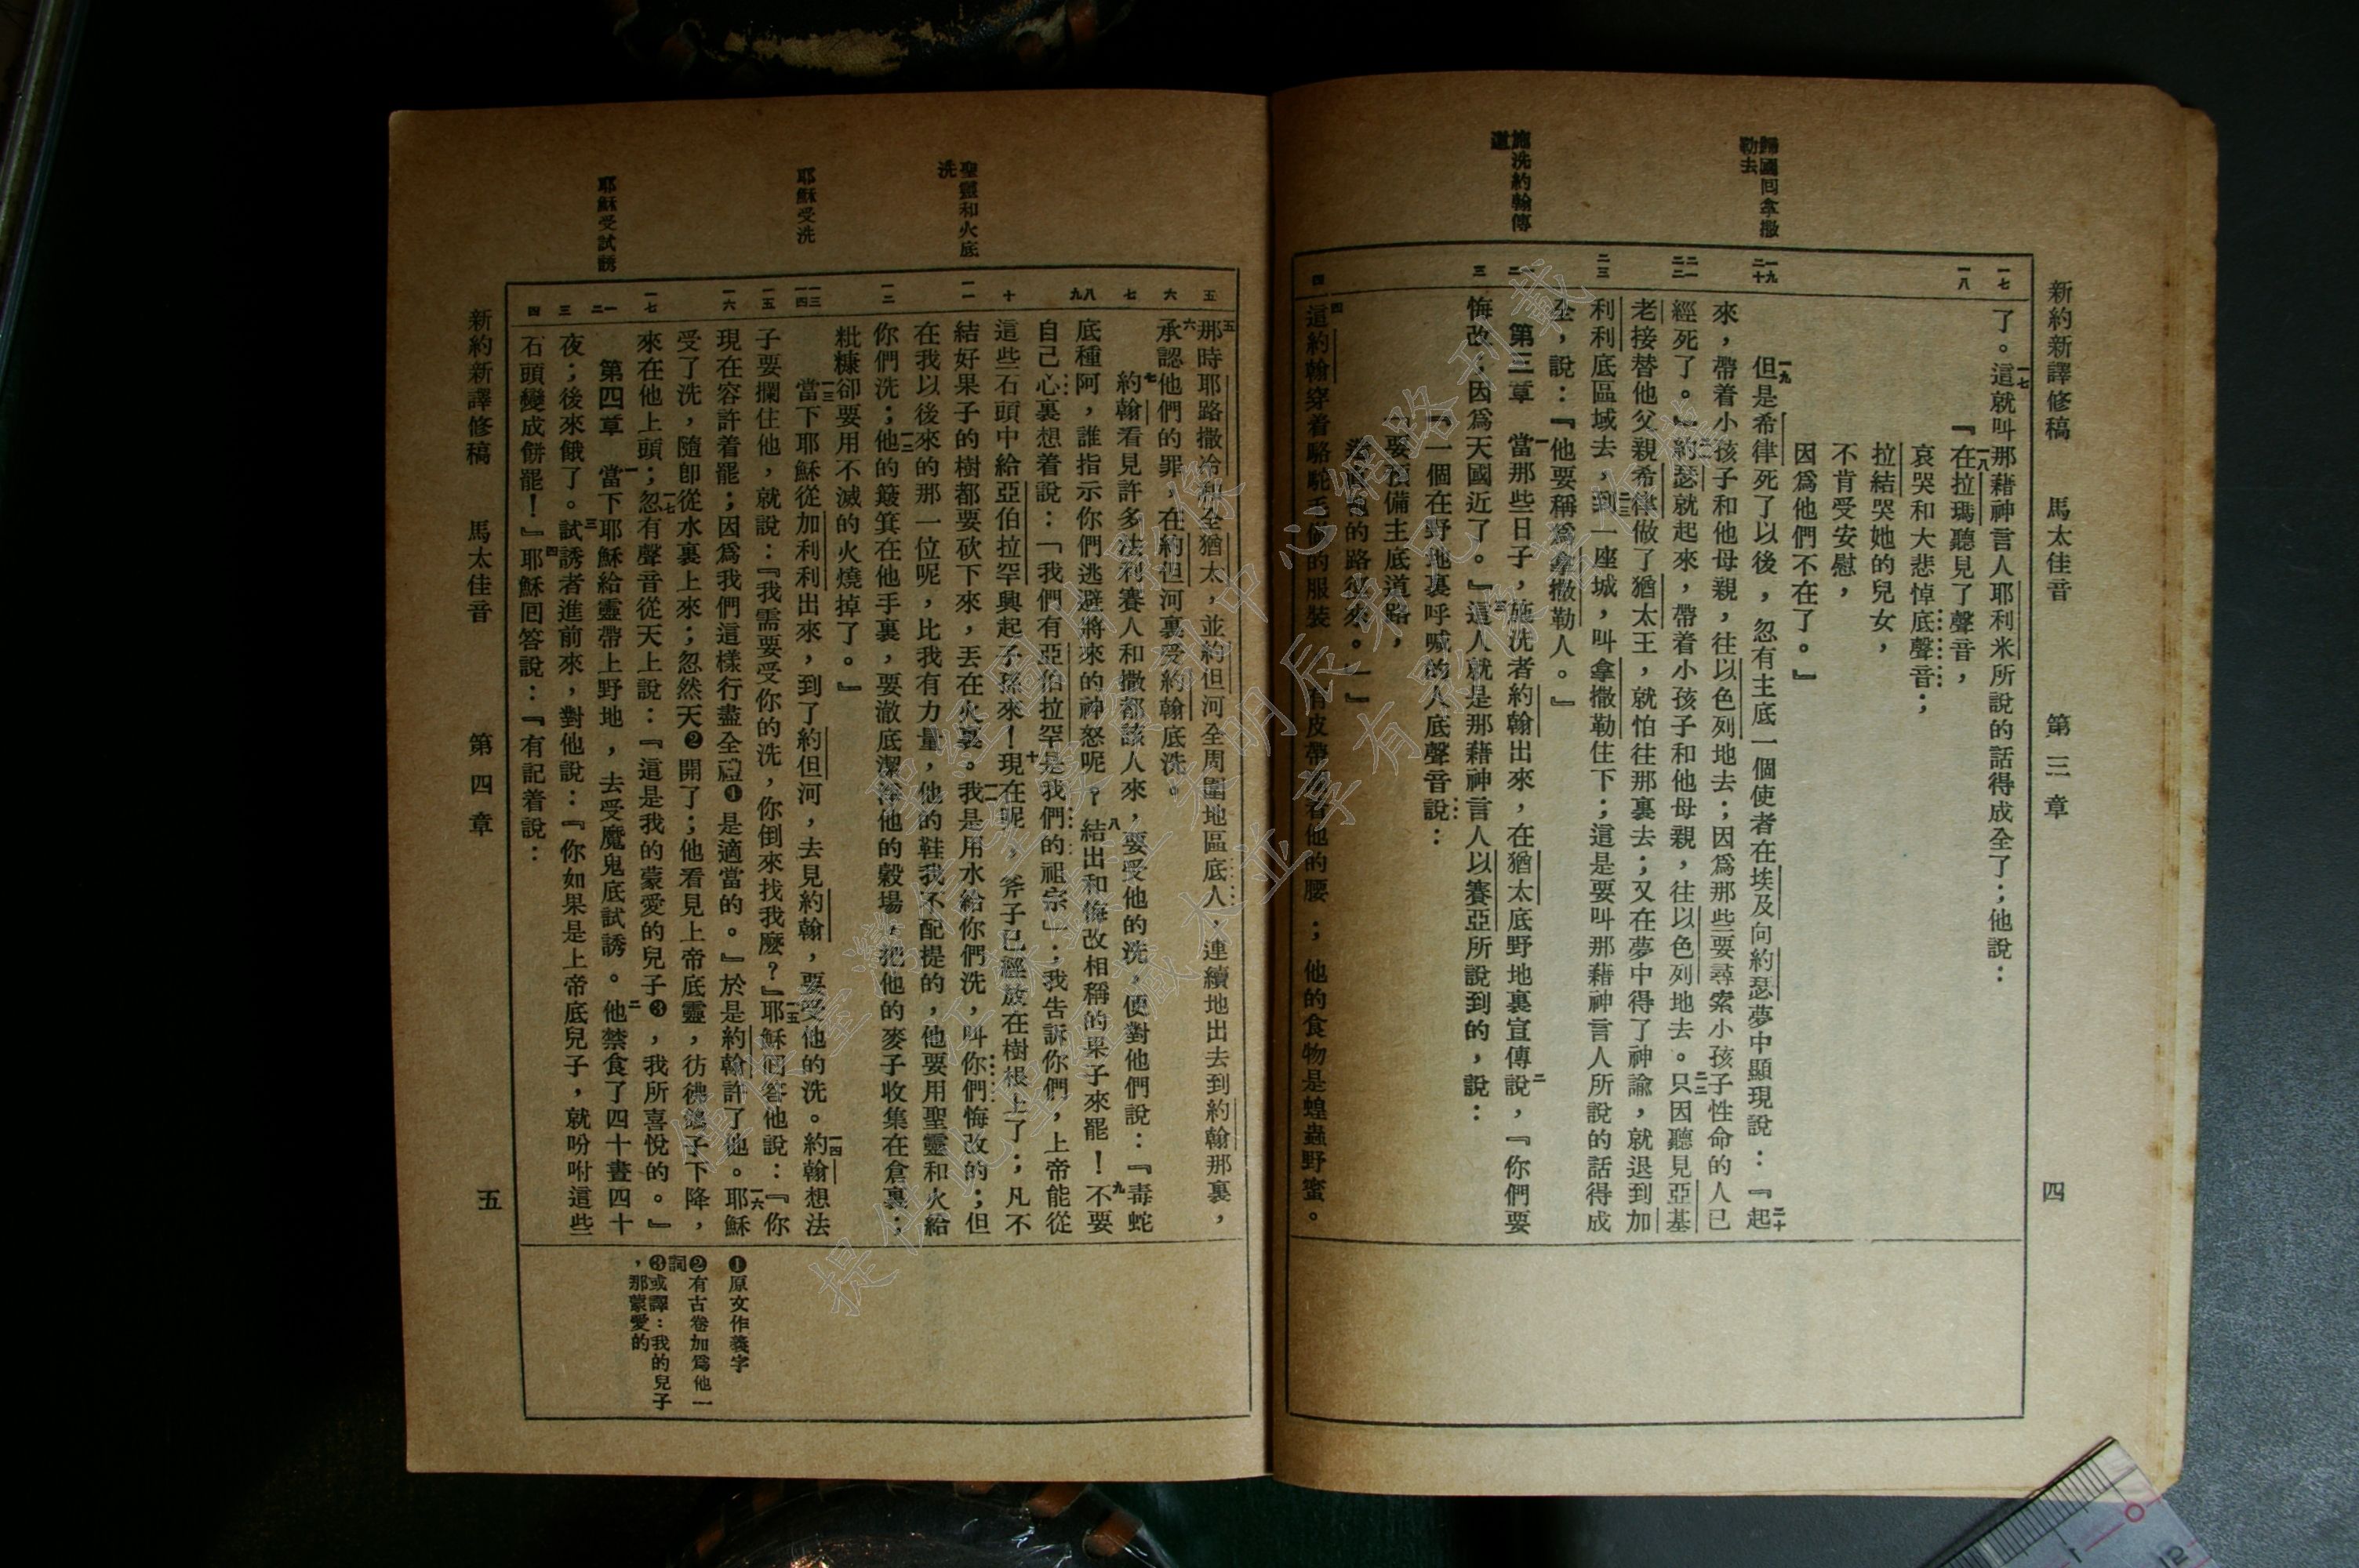 新約新譯修稿 馬太佳音 第三章 四
歸國回拿撒
勒去
施洗約翰傳
道
一七
一八
一九
二十
二一
二二
二三
一
二
三
四
了。一七這就叫那藉神言人耶利米所說的話得成全了;他說:
『一八在拉瑪聽見了聲音,
哀哭和大悲悼底聲音;
拉結哭她的兒女,
不肯受安慰,
因爲他們不在了。』
一九但是希律死了以後,忽有主底一個使者在埃及向約瑟夢中顯現說:『二十起
來,帶着小孩子和他母親,往以色列地去;因爲那些要尋索小孩子性命的人已
經死了。』二一約瑟就起來,帶着小孩子和他母親,往以色列地去。二二只因聽見亞基
老接替他父親希律做了猶太王,就怕往那裏去;又在夢中得了神諭,就退到加
利利底區域去,二三到一座城,叫拿撒勒住下;這是要叫那藉神言人所說的話得成
全,說:『他要稱爲拿撒勒人。』
第三章 一當那些日子,施洗者約翰出來,在猶太底野地裏宣傳說,二『你們要
悔改;因爲天國近了。』三這人就是那藉神言人以賽亞所說到的,說:
『一個在野地裏呼喊的人底聲音說:
「要預備主底道路,
的路徑來。」』
四這約翰穿着駱駝毛做的服裝,有皮帶 着他的腰;他的食物是蝗蟲野蜜。
聖靈和火底
洗
耶穌受洗
耶穌受試誘
五
六
七
八
九
十
一一
一二
一三
一四
一五
一六
一七
一
二
三
四
五那時耶路撒冷和全猶太,並約但河全周圍地區底人,連續地出去到約翰那裏,
六承認他們的罪,在約但河裏受約翰底洗。
七約翰看見許多法利賽人和撒都該人來,要受他的洗,便對他們說:『毒蛇
底種阿,誰指示你們逃避將來的神怒呢?八結出和悔改相稱的果子來罷!九不要
自己心裏想着說:「我們有亞伯拉罕是我們的祖宗」;我告訴你們,上帝能從
這些石頭中給亞伯拉罕興起子孫來!十現在呢,斧子已經放在樹根上了;凡不
結好果子的樹都要砍下來,丟在火裏。一一我是用水給你們洗,叫你們悔改的;但
在我以後來的那一位呢,比我有力量,他的鞋我不配提的,他要用聖靈和火給
你們洗;一二他的簸箕在他手裏,要澈底潔淨他的穀場,把他的麥子收集在倉裏;
粃糠卻要用不滅的火燒掉了。』
一三當下耶穌從加利利出來,到了約但河,去見約翰,要受他的洗。一四約翰想法
子要攔住他,就說:『我需要受你的洗,你倒來找我麽?』一五耶穌回答他說:『你
現在容許着罷;因爲我們這樣行盡全禮❶是適當的。』於是約翰許了他。一六耶穌
受了洗,隨卽從水裏上來;忽然天❷開了;他看見上帝底靈,彷彿鴿子下降,
來在他上頭;一七忽有聲音從天上說:『這是我的蒙愛的兒子❸,我所喜悅的。』
第四章 一當下耶穌給靈帶上野地,去受魔鬼底試誘。二他禁食了四十晝四十
夜;後來餓了。三試誘者進前來,對他說:『你如果是上帝底兒子,就吩咐這些
石頭變成餅罷!』四耶穌回答說:『有記着說:
❶原文作義字
❷有古卷加爲他一
詞
❸或譯:我的兒子
,那蒙愛的
新約新譯修稿 馬太佳音 第四章 五